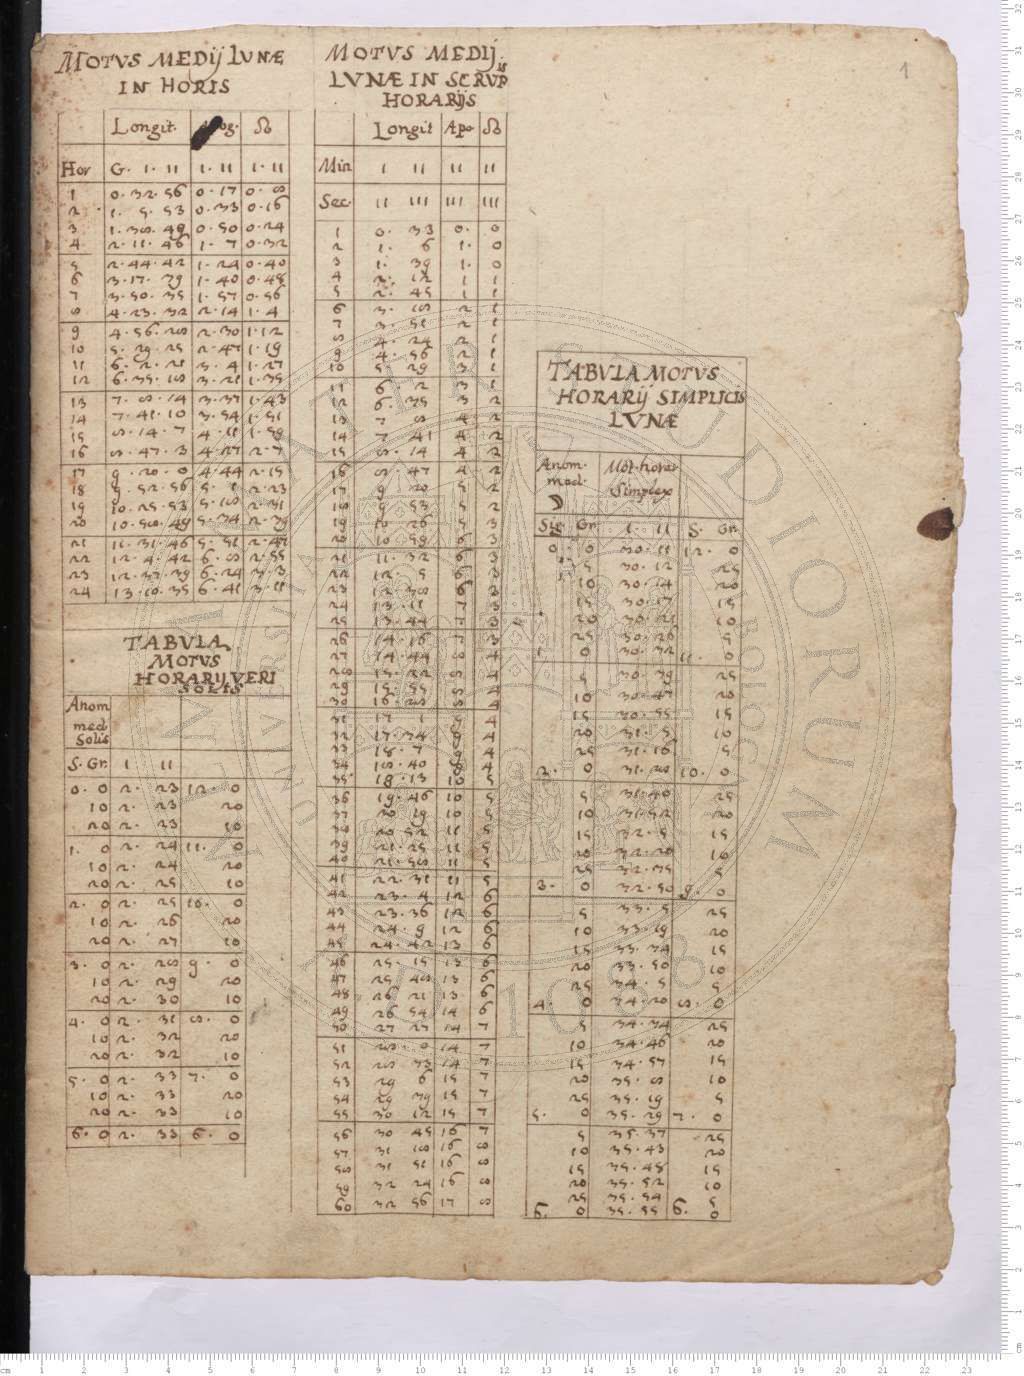 1
MOTVS MEDIJ LVNÆ
IN HORIS
Longit. Apog. ☊
Hor G. I. II I. II I. II
1 0. 32. 56 0. 17 0. 8
2 1. 5. 53 0. 33 0. 16
3 1. 38. 49 0. 50 0. 24
4 2. 11. 46 1. 7 0. 32
5 2. 44. 42 1. 24 0. 40
6 3. 17. 39 1. 40 0. 48
7 3. 50. 35 1. 57 0. 56
8 4. 23. 32 2. 14 1. 4
9 4. 56. 28 2. 30 1. 12
10 5. 29. 25 2. 47 1. 19
11 6. 2. 21 3. 4 1. 27
12 6. 35. 18 3. 21 1. 35
13 7. 8. 14 3. 37 1. 43
14 7. 41. 10 3. 54 1. 51
15 8. 14. 7 4. 11 1. 59
16 8. 47. 3 4. 27 2. 7
17 9. 20. 0 4. 44 2. 15
18 9. 52. 56 5. 1 2. 23
19 10. 25. 53 5. 18 2. 31
20 10. 58. 49 5. 34 2. 39
21 11. 31. 46 5. 51 2. 47
22 12. 4. 42 6. 8 2. 55
23 12. 37. 39 6. 24 3. 3
24 13. 10. 35 6. 41 3. 11
TABVLA
MOTVS
HORARIJ VERI
SOLIS
Anom
med
Solis
S. Gr. I II
0. 0 2. 23 12. 0
10 2. 23 20
20 2. 23 10
1. 0 2. 24 11. 0
10 2. 24 20
20 2. 25 10
2. 0 2. 25 10. 0
10 2. 26 20
20 2. 27 10
3. 0 2. 28 9. 0
10 2. 29 20
20 2. 30 10
4. 0 2. 31 8. 0
10 2. 32 20
20 2. 32 10
5. 0 2. 33 7. 0
10 2. 33 20
20 2. 33 10
6. 0 2. 33 6. 0
MOTVS MEDIJ
LVNÆ IN SCRVP
is
HORARIJS
Longit Apo ☊
Min I II II II
Sec. II III III III
1 0. 33 0. 0
2 1. 6 1. 0
3 1. 39 1. 0
4 2. 12 1 1
5 2. 45 1 1
6 3. 18 2 1
7 3. 51 2 1
8 4. 24 2 1
9 4. 56 2 1
10 5 29 3 1
11 6 2 3 1
12 6. 35 3 2
13 7 8 4 2
14 7 41 4 2
15 8. 14 4 2
16 8. 47 4 2
17 9 20 5 2
18 9 53 5 2
19 10 26 5 3
20 10 59 6 3
21 11. 32 6 3
22 12. 5 6 3
23 12 38 6 3
24 13. 11 7 3
25 13. 44 7 3
26 14. 16 7 3
27 14. 44 8 4
28 15. 22 8 4
29 15. 55 8 4
30 16. 28 8 4
31 17 1 9 4
32 17. 34 9 4
33 18. 7 9 4
34 18. 40 9 4
35 18. 13 10 5
36 19. 46 10 5
37 20 19 10 5
38 20 52 11 5
39 21. 25 11 5
40 21. 58 11 5
41 22. 31 11 5
42 23. 4 12 6
43 23. 36 12 6
44 24. 9 12 6
45 24. 42 13 6
46 25. 15 13 6
47 25 48 13 6
48 26 21 13 6
49 26 54 14 6
50 27 27 14 7
51 28. 0 14 7
52 28 33 14 7
53 29 6 15 7
54 29 39 15 7
55 30 12 15 7
56 30 45 16 7
57 31 18 16 8
58 31 51 16 8
59 32 24 16 8
60 32 56 17 8
TABVLA MOTVS
HORARIJ SIMPLICIS
LVNÆ
Anom. Mot. horar
med. Simplex
☽
Sig. Gr. I. II S. Gr.
0. 0 30. 11 12. 0
5 30. 12 25
10 30. 14 20
15 30. 17 15
20 30. 21 10
25 30. 26 5
1. 0 30. 32 11. 0
5 30. 39 25
10 30. 47 20
15 30. 55 15
20 31. 5 10
25 31. 16 5
2. 0 31. 28 10. 0
5 31. 40 25
10 31. 52 20
15 32. 5 15
20 32. 20 10
25 32. 35 5
3. 0 32. 50 9. 0
5 33. 5 25
10 33. 19 20
15 33. 34 15
20 33. 50 10
25 34. 5 5
4. 0 34. 20 8. 0
5 34. 34 25
10 34. 46 20
15 34. 57 15
20 35. 8 10
25 35. 19 5
5. 0 35. 29 7. 0
5 35. 37 25
10 35. 43 20
15 35. 48 15
20 35. 52 10
25 35. 54 5
6. 0 35. 55 6. 0